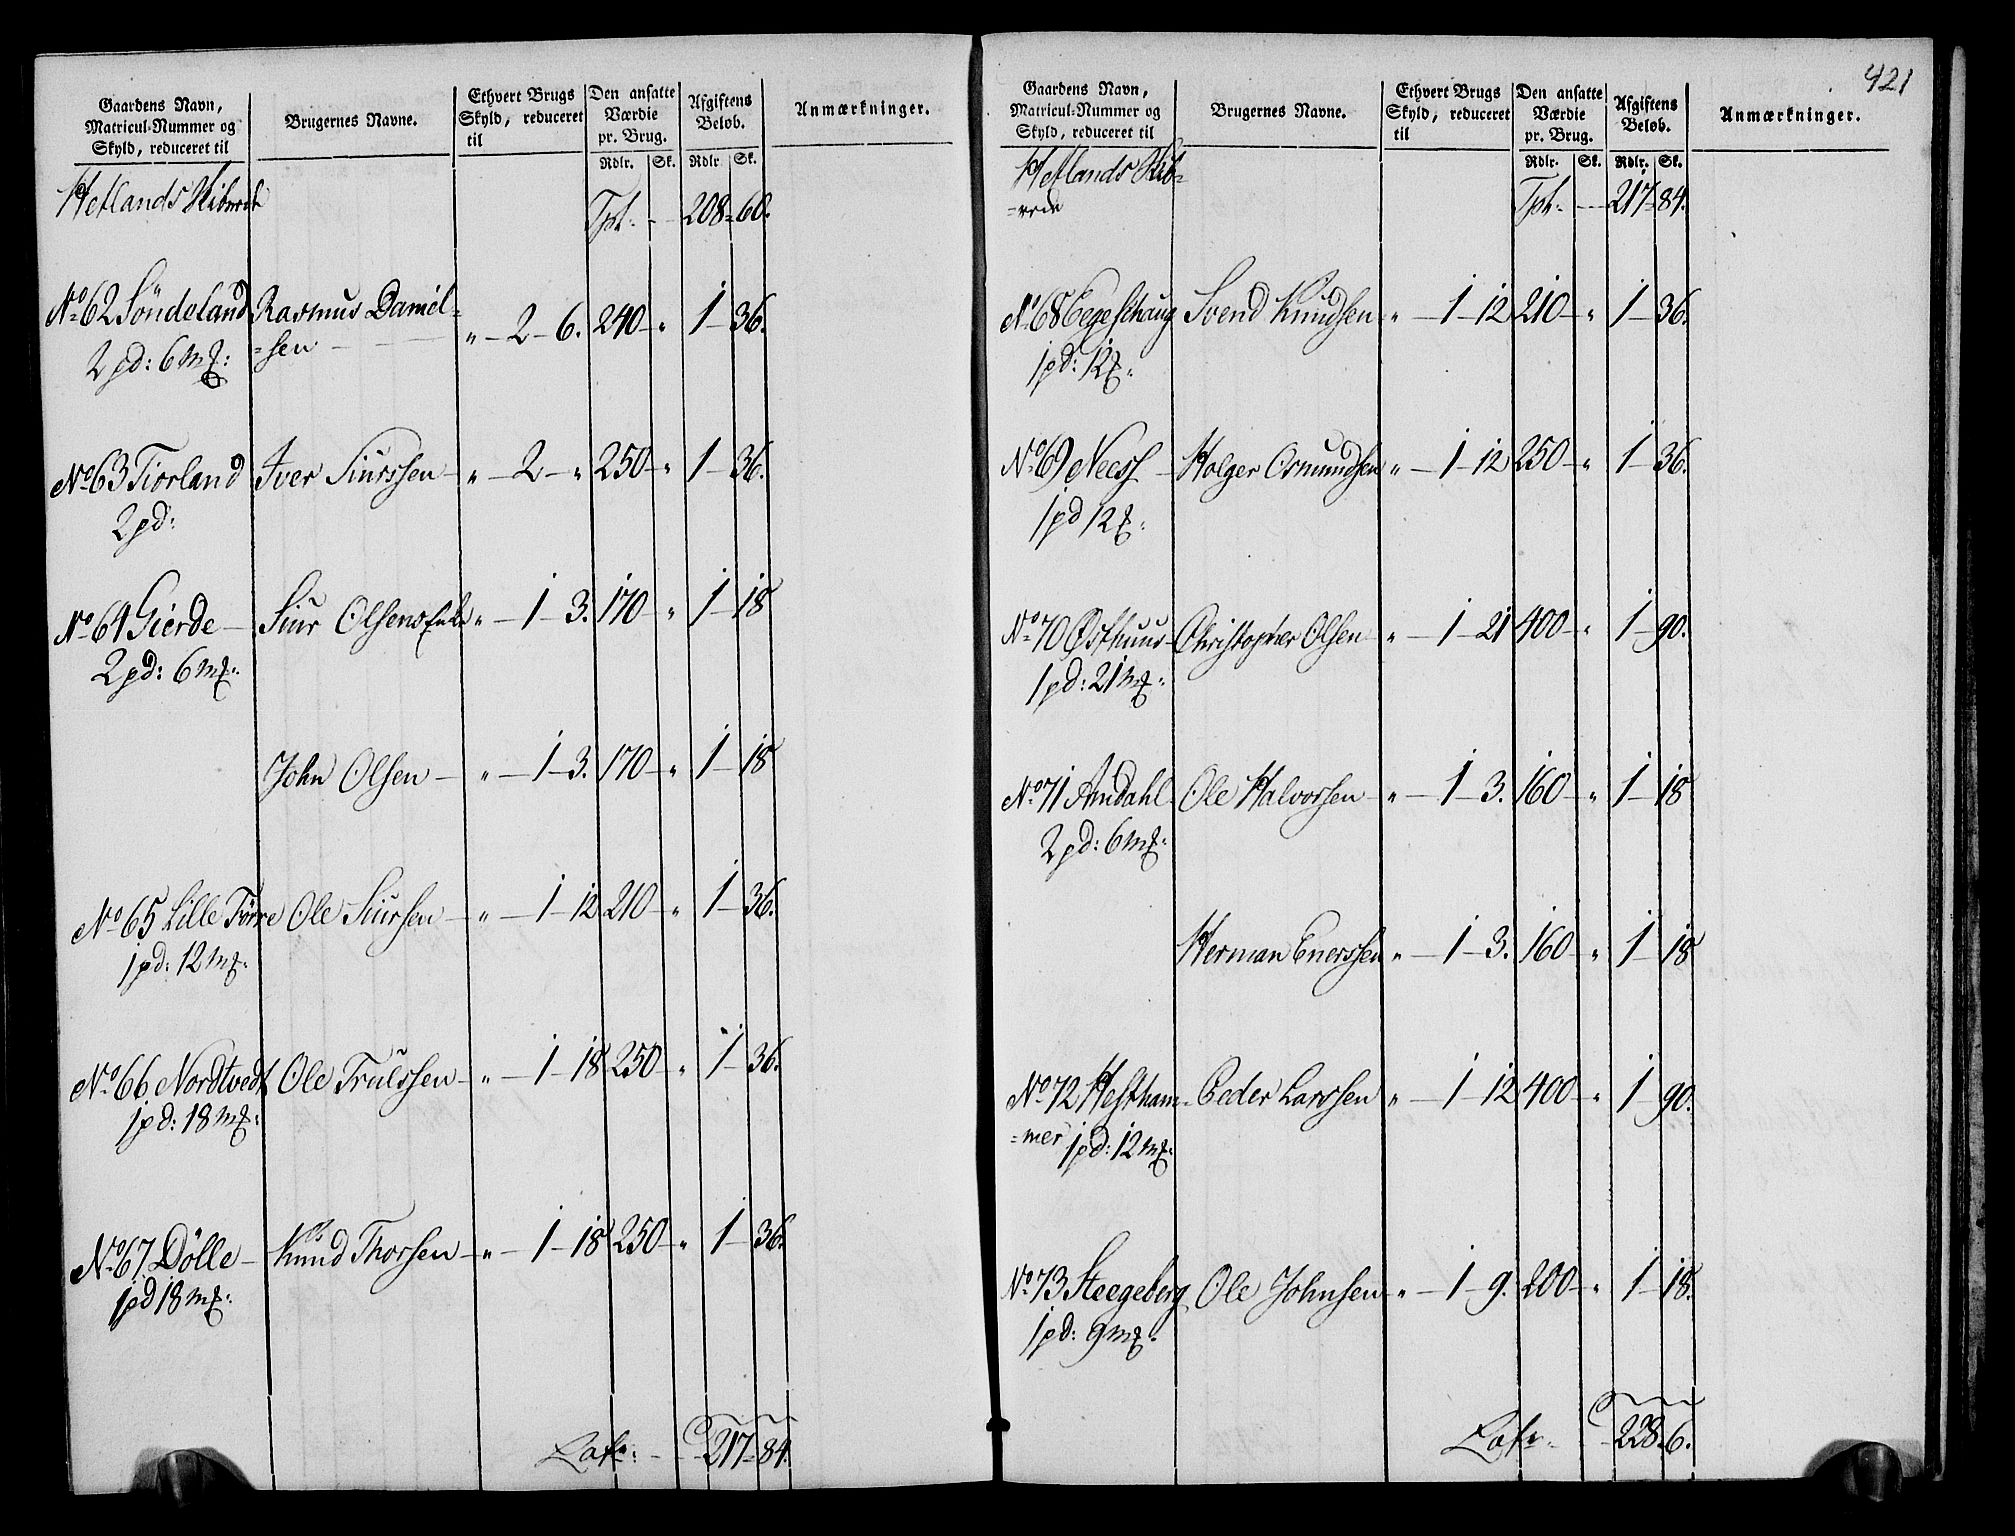 Gaardens Navn,
Matricul-Nummer og
Skyld, reduceret til
Brugernes Navne.
Ethvert Brugs
Skyld, reduceret
til
Den ansatte
Værdie
pr. Brug.
Rdlr. Sk.
Afgiftens
Beløb.
Rdlr. Sk.
Anmærkninger.
Hetlands Skibrede
Tpt. - - 208 - 60.
No 62 Söndeland Rasmus Daniel= " - 2 - 6. 240 - " 1 - 36.
2 pd: 6 mk: =sen
No 63 Tiorland Iver Siurssen - " - 2 - " 250 - " 1 - 36.
2 pd:
No 64 Gierde - Siur Olsens Enke " - 1 - 3. 170 - " 1 - 18
2 pd: 6 mk:
John Olsen - " - 1 - 3. 170 - " 1 - 18
No 65 Lille Törre Ole Siursen - " - 1 - 12 210 - " 1 - 36.
1 pd: 12 mk:
No 66 Nordtvedt Ole Trulssen - " - 1 - 18 250 " 1 - 36.
1 pd: 18 mk:
No 67 Dölle - Knud Thorsen - " - 1 - 18 250 - " 1 - 36.
1 pd 18 mk:
Lat: - - 217 - 84.
421
Gaardens Navn,
Matricul-Nummer og
Skyld, reduceret til
Brugernes Navne.
Ethvert Brugs
Skyld, reduceret
til
Den ansatte
Værdie
pr. Brug.
Rdlr. Sk.
Afgiftens
Beløb.
Rdlr. Sk.
Anmærkninger.
Hetlands Skib=
=rede
Tpt. - - 217 - 84.
No 68 Egeschaug Svend Knudsen " - 1 - 12 210 - " 1 - 36.
1 pd: 12 mk:
No 69 Neess - Holger Osmundsen " - 1 - 12 250 - " 1 - 36.
1 pd 12 mk:
No 70 Østhuus - Christopher Olsen - " - 1 - 21 400 - " 1 - 90.
1 pd: 21 mk:
No 71 Amdahl Ole Halvorsen - " - 1 - 3. 160 - " 1 - 18
2 pd: 6 mk:
Herman Enerssen " - 1 - 3. 160 - " 1 - 18
No 72 Hestham= Peder Larssen " - 1 - 12 400 - " 1 - 90.
=mer 1 pd: 12 mk:
No 73 Steegeberg Ole Johnsen - " - 1 - 9. 200 - " 1 - 18.
1 pd: 9 mk:
Lat: - 228 - 6.